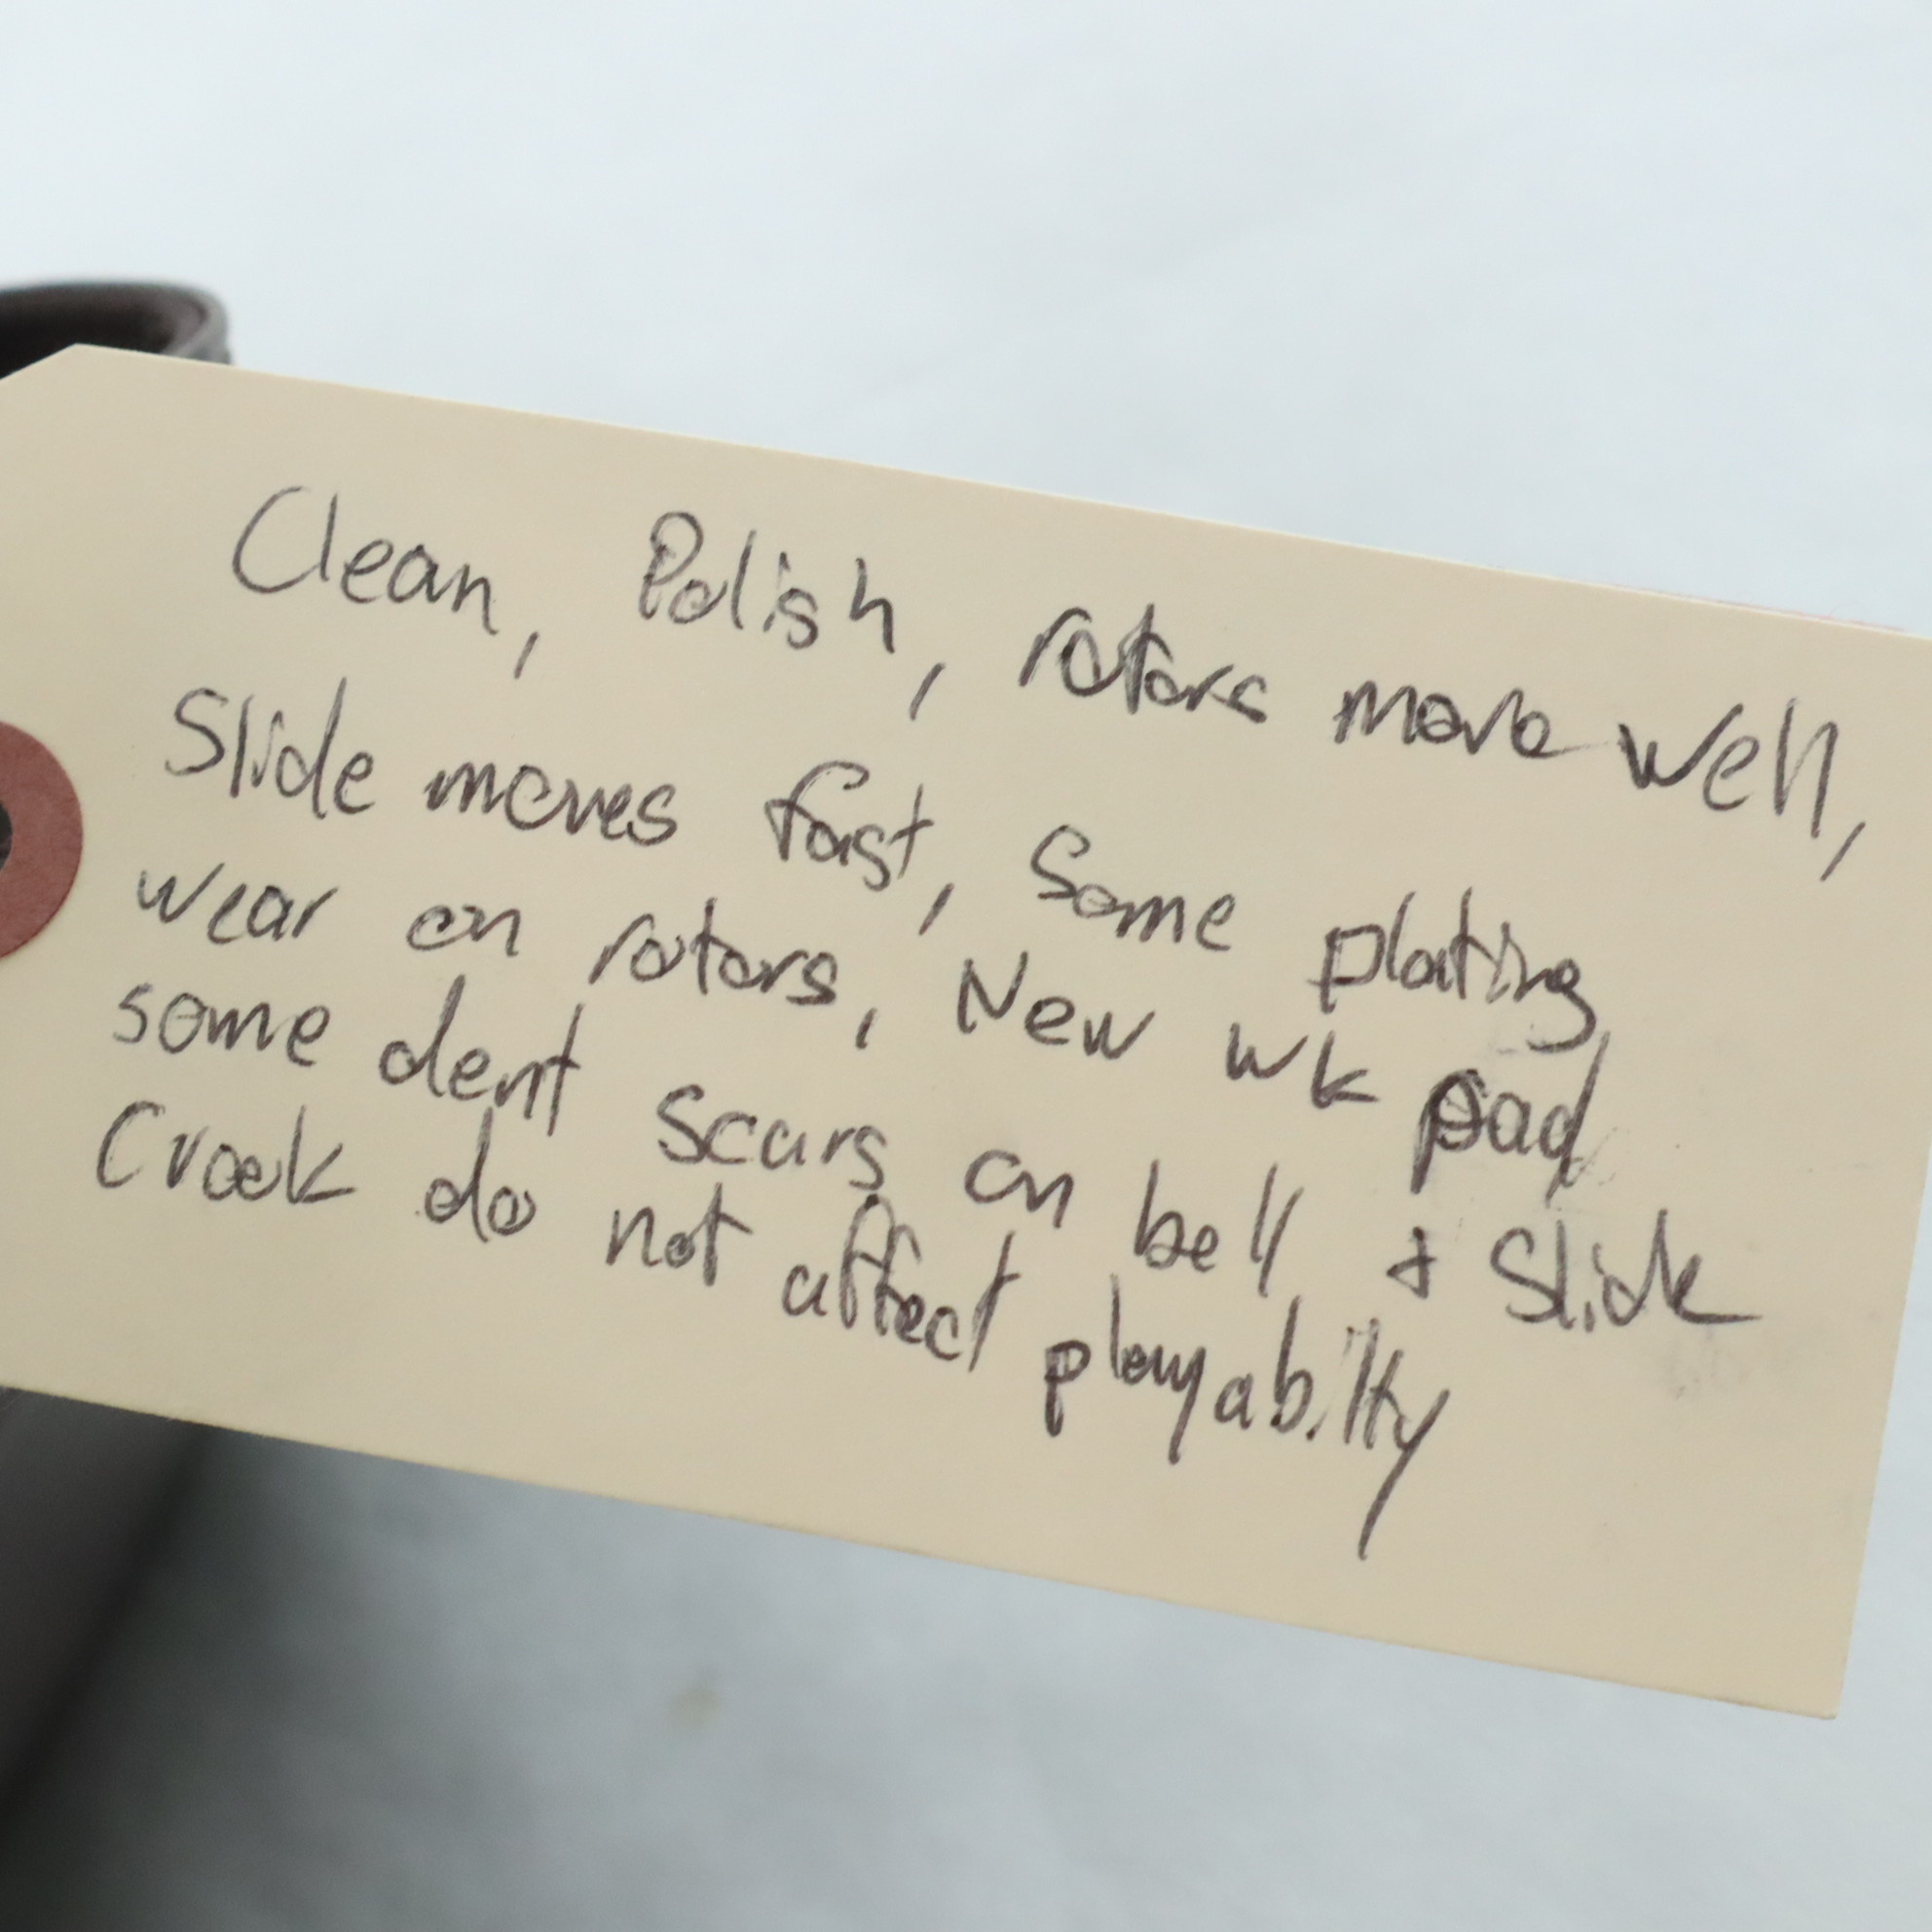 Clean, Polish, rotors move well,
Slide moves fast, Some plating
wear on rotors, New wk pad
some dent scars on bell + Slide
Crook do not affect playabilty